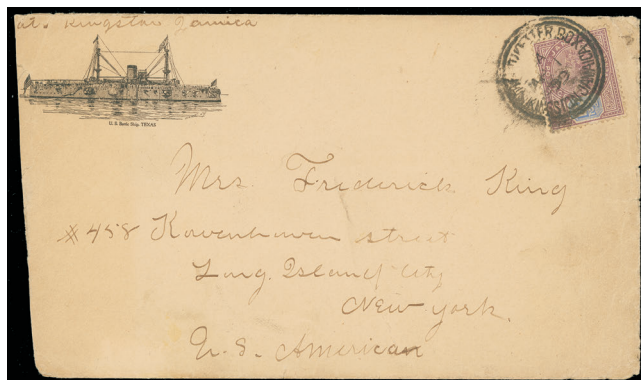 at. Kingston Jamaica
U.S. Battle Ship, TEXAS
Mrs. Frederick King
#458 Kowenhoven street
Long Island City
New York.
U.S. American